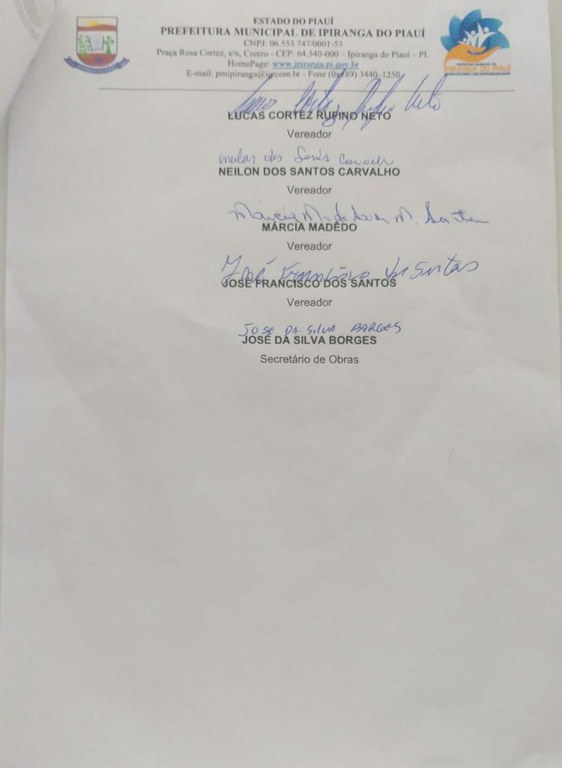 ESTADO DO PIAUÍ
PREFEITURA MUNICIPAL DE IPIRANGA DO PIAUÍ
CNPJ: 06.553.747/0001-53
Praça Rosa Cortez, s/n, Centro - CEP: 64.540-000 – Ipiranga do Piauí – PI.
HomePage: www.ipiranga.pi.gov.br
E-mail: pmipiranga@ig.com.br - Fone (0xx89) 3440-1250
IPIRANGA DO PIAUÍ
LUCAS CORTEZ RUFINO NETO
Vereador
dos Santos Carvalho
NEILON DOS SANTOS CARVALHO
Vereador
MÁRCIA MADÊDO
Vereador
José Francisco dos Santos
JOSÉ FRANCISCO DOS SANTOS
Vereador
JOSE DA SILVA BORGES
JOSÉ DA SILVA BORGES
Secretário de Obras